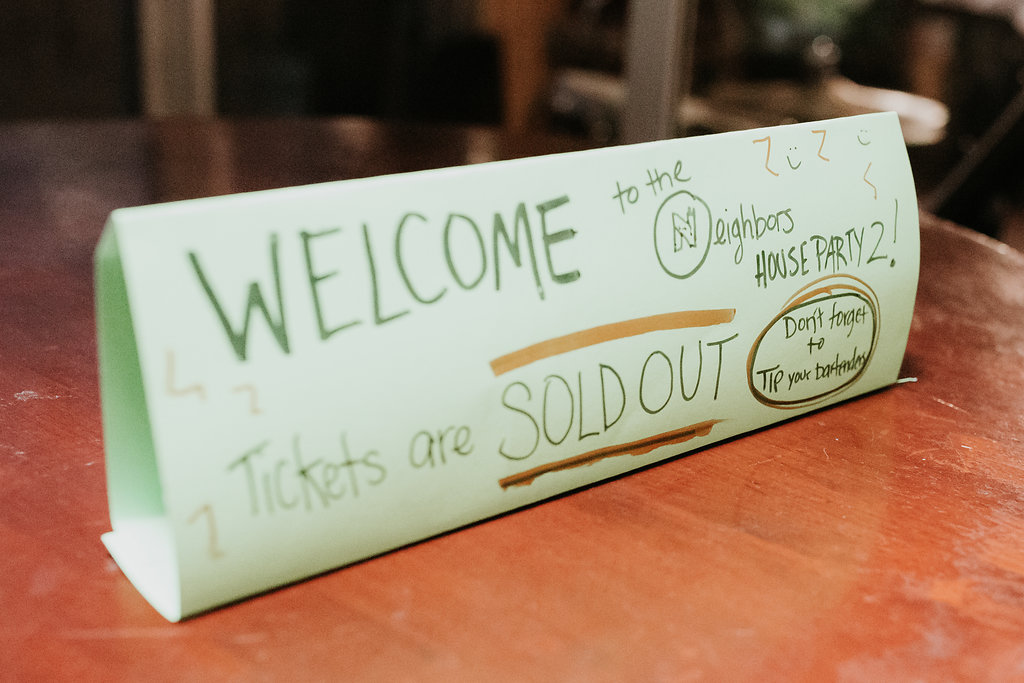 WELCOME to the
Neighbors
HOUSE PARTY 2!
Tickets are SOLD OUT
Don't forget
to
TIP your bartenders